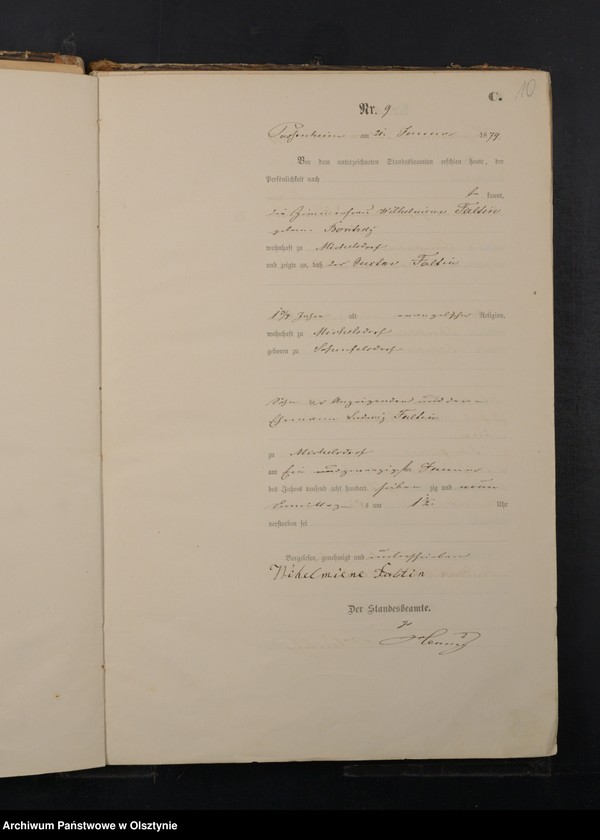 C. 10
Nr. 9
Passenheim am 21. Januar 1879.
Vor dem unterzeichneten Standesbeamten erschien heute, der
Persönlichkeit nach
kannt,
die Wilhelmine Faltin
geborene
wohnhaft zu Michelsdorf
und zeigte an, daß der Gustav Faltin
Jahre alt evangelischer Religion,
wohnhaft zu Michelsdorf
geboren zu
Sohn der Anzeigenden und deren
Ehemann Ludwig Faltin
zu Michelsdorf
am Januar
des Jahres tausend acht hundert sieben zig und neun
Vormittags um Uhr
verstorben sei
Vorgelesen, genehmigt und unterschrieben
Wihelmiene Faltin
Der Standesbeamte.
Archiwum Państwowe w Olsztynie